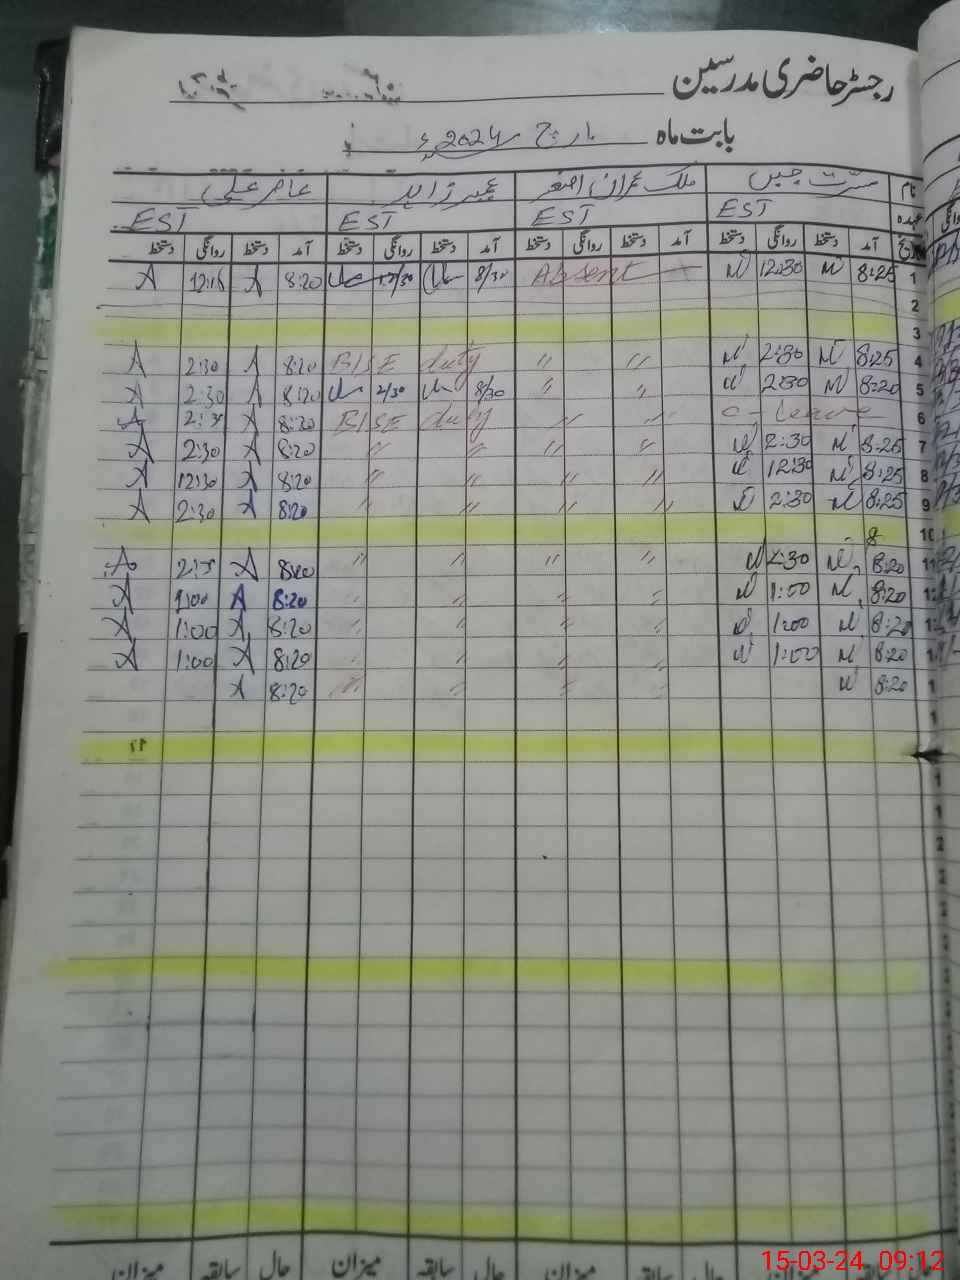 رجسٹر حاضری مدرسین
بابت ماہ مارچ 2024ء
نام مسرت جبیں ملک عمران اصغر عمیر زاہد عامر علی
عہدہ EST EST EST EST
تاریخ آمد دستخط روانگی دستخط آمد دستخط روانگی دستخط آمد دستخط روانگی دستخط آمد دستخط روانگی دستخط
1 8:25 M 12:30 M Absent 8/30 12/30 8:20 A 12:15 A
2
3
4 8:25 M 2:30 M " " BISE duty 8:20 A 2:30 A
5 8:20 M 2:30 M " " 8/30 2/30 8:20 A 2:30 A
6 C-Leave " " BISE duty 8:20 A 2:30 A
7 8:25 M 2:30 M " " " " 8:20 A 2:30 A
8 8:25 M 12:30 M " " " " 8:20 A 12:30 A
9 8:25 M 2:30 M " " " " 8:20 A 2:30 A
10 8
11 8:20 M 2:30 M " " " " 8:20 A 2:30 A
1 8:20 M 1:00 M " " " " 8:20 A 1:00 A
1 8:20 M 1:00 M " " " " 8:20 A 1:00 A
1 8:20 M 1:00 M " " " " 8:20 A 1:00 A
1 8:20 M " " " " 8:20 A
1
17
1
1
2
2
2
میزان حال سابقہ میزان حال سابقہ میزان حال سابقہ میزان
15-03-24 09:12